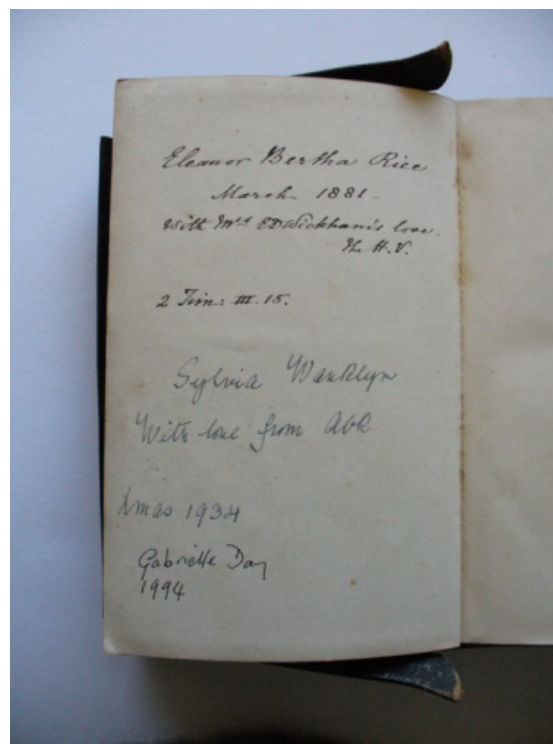 Eleanor Bertha Rice
March 1881
With Mrs EDWickham's love.
2 Tim: III. 15.
Sylvia Wanklyn
With love from
Xmas 1934
Gabrielle Day
1994